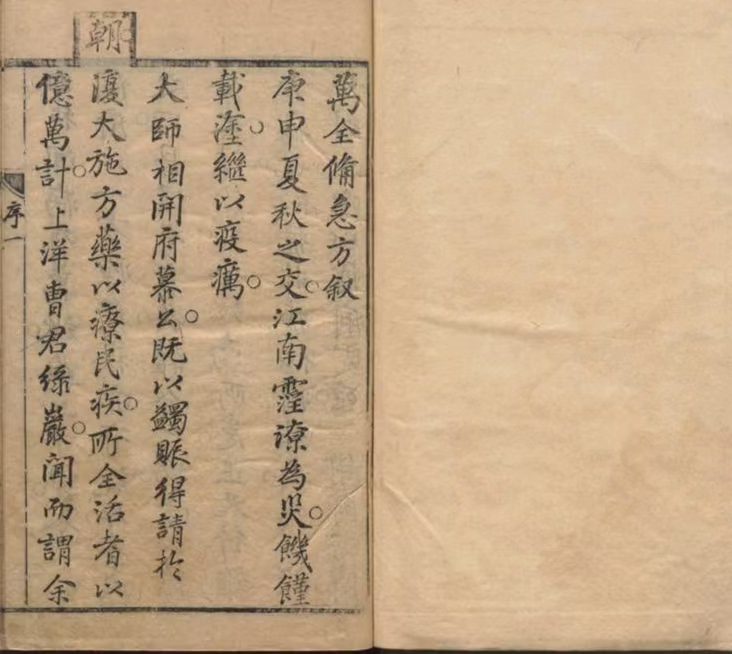 萬全俻急方叙
庚申夏秋之交。江南霪潦為災。饑饉
載塗。繼以疫癘。
大師相開府慕公。既以蠲賑得請於
朝復大施方藥以療民疾。所全活者以
億萬計。上洋曹君綠巖。聞而謂余
序一